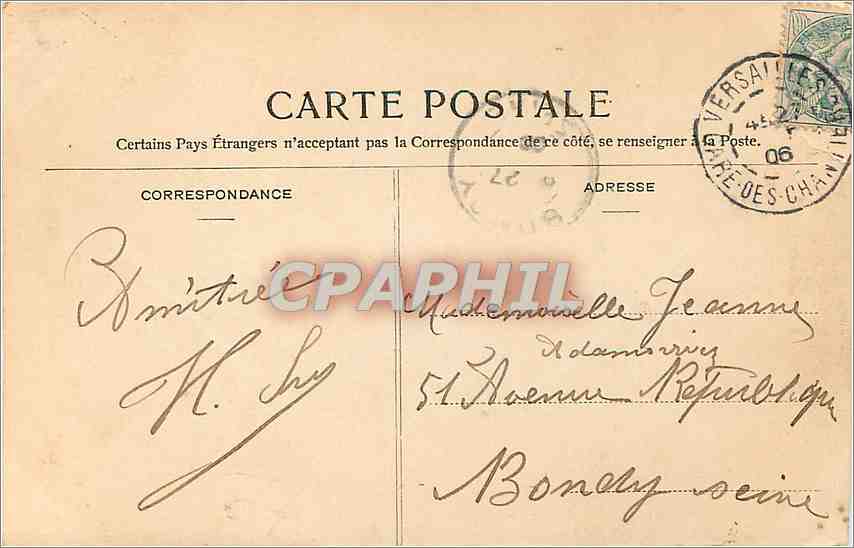 CARTE POSTALE
Certains Pays Étrangers n'acceptant pas la Correspondance de ce côté, se renseigner à la Poste.
VERSAILLES
GARE-DES-CHAN
06
27
CORRESPONDANCE
ADRESSE
CPAPHIL
Amitiée
H.
Mademoiselle Jeanne
51 Avenue République
Bondy seine